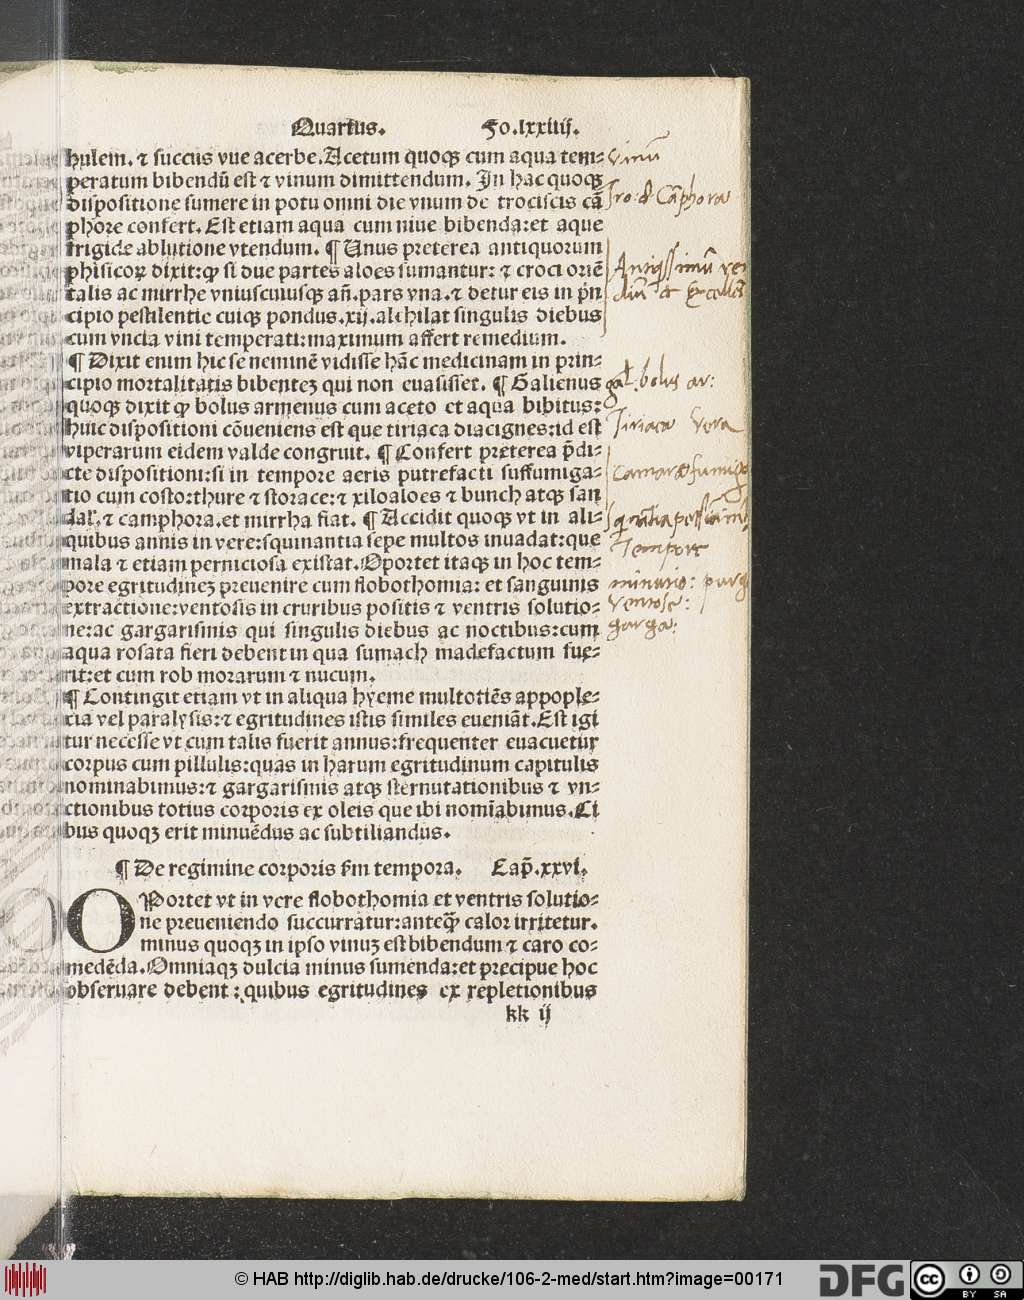 Quartus. Fo.lxxiiij.
hulem. ⁊ succus vue acerbe. Acetum quoqꝫ cum aqua tem-
peratum bibendū est ⁊ vinum dimittendum. In hac quoqꝫ
dispositione sumere in potu omni die vnum de trociscis cā
phore confert. Est etiam aqua cum niue bibenda: et aque
frigide ablutione vtendum. ¶ Unus preterea antiquorum
phisicoꝝ dixit: ꝙ si due partes aloes sumantur: ⁊ croci oriē
talis ac mirrhe vniuscuiusqꝫ añ. pars vna. ⁊ detur eis in p̄n
cipio pestilentie cuiqꝫ pondus .xij. alchilat singulis diebus
cum vncia vini temperati: maximum affert remedium.
¶ Dixit enim hic se neminē vidisse hāc medicinam in prin-
cipio mortalitatis bibenteꝫ qui non euasisset. ¶ Galienus
quoqꝫ dixit ꝙ bolus armenus cum aceto et aqua bibitus:
huic dispositioni cōueniens est que tiriaca diacignes: id est
viperarum eidem valde congruit. ¶ Confert preterea p̄di-
cte dispositioni: si in tempore aeris putrefacti suffumiga-
tio cum costo: thure ⁊ storace: ⁊ xiloaloes ⁊ bunch atqꝫ san
dal. ⁊ camphora. et mirrha fiat. ¶ Accidit quoqꝫ vt in ali-
quibus annis in vere: squinantia sepe multos inuadat: que
mala ⁊ etiam perniciosa existat. Oportet itaqꝫ in hoc tem-
pore egritudineꝫ preuenire cum flobothomia: et sanguinis
extractione: ventosis in cruribus positis ⁊ ventris solutio-
ne: ac gargarismis qui singulis diebus ac noctibus: cum
aqua rosata fieri debent in qua sumach madefactum fue-
rit: et cum rob morarum ⁊ nucum.
¶ Contingit etiam vt in aliqua hyeme multotiēs appople-
cia vel paralysis: ⁊ egritudines istis similes eueniāt. Est igi
tur necesse vt cum talis fuerit annus: frequenter euacuetur
corpus cum pillulis: quas in harum egritudinum capitulis
nominabimus: ⁊ gargarismis atqꝫ sternutationibus ⁊ vn-
ctionibus totius corporis ex oleis que ibi nomīabimus. Ci
bus quoqꝫ erit minuēdus ac subtiliandus.
¶ De regimine corporis ẜm tempora. Cap̄. xxvi.
OPortet vt in vere flobothomia et ventris solutio-
ne preueniendo succurratur: anteqꝫ̄ calor irritetur.
minus quoqꝫ in ipso vinuꝫ est bibendum ⁊ caro co-
medēda. Omniaqꝫ dulcia minus sumenda: et precipue hoc
obseruare debent: quibus egritudines ex repletionibus
kk ij
vinū
Tro: d Cāphora
gal: bolus ar:
Tiriaca vera
tempore
minutio: purg
ventose:
garga:
© HAB http://diglib.hab.de/drucke/106-2-med/start.htm?image=00171
DFG
cc
BY SA